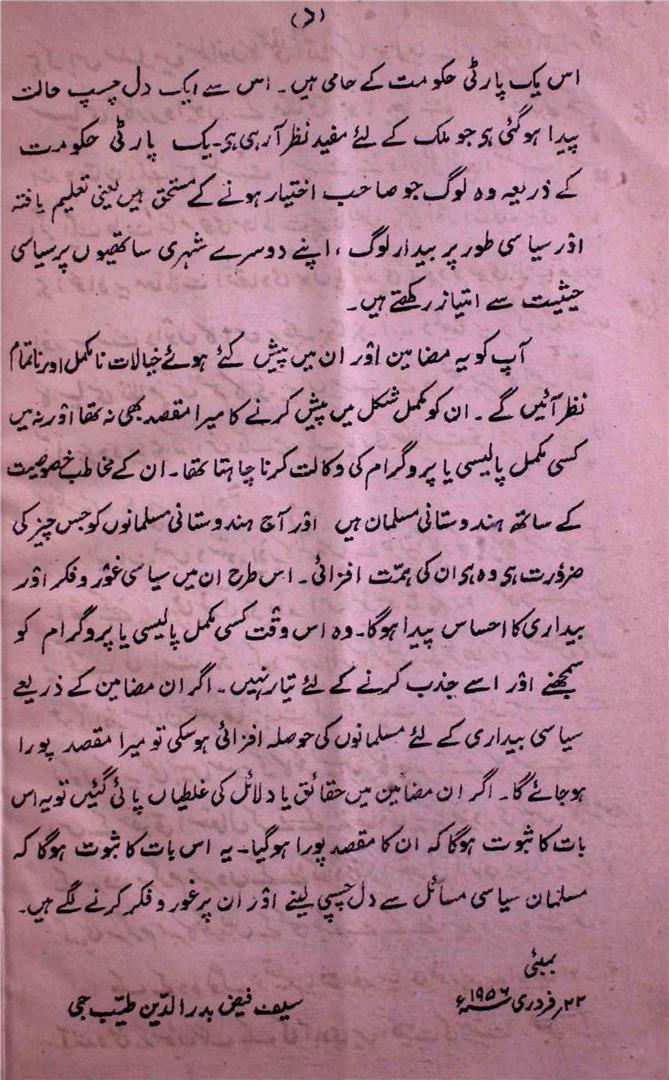 (د)
اس یک پارٹی حکومت کے حامی ہیں۔ اس سے ایک دل چسپ حالت
پیدا ہوگئی ہی جو ملک کے لئے مفید نظر آرہی ہی۔ یک پارٹی حکومت
کے ذریعہ وہ لوگ جو صاحب اختیار ہونے کے مستحق ہیں یعنی تعلیم یافتہ
اور سیاسی طور پر بیدار لوگ، اپنے دوسرے شہری ساتھیوں پر سیاسی
حیثیت سے امتیاز رکھتے ہیں۔
آپ کو یہ مضامین اور ان میں پیش کئے ہوئے خیالات نامکمل اور ناتمام
نظر آئیں گے۔ ان کو مکمل شکل میں پیش کرنے کا میرا مقصد بھی نہ تھا اور نہ میں
کسی مکمل پالیسی یا پروگرام کی وکالت کرنا چاہتا تھا۔ ان کے مخاطب خصوصیت
کے ساتھ ہندوستانی مسلمان ہیں اور آج ہندوستانی مسلمانوں کو جس چیز کی
ضرورت ہی وہ ہی ان کی ہمّت افزائی۔ اس طرح ان میں سیاسی غور و فکر اور
بیداری کا احساس پیدا ہوگا۔ وہ اس وقت کسی مکمل پالیسی یا پروگرام کو
سمجھنے اور اسے جذب کرنے کے لئے تیار نہیں۔ اگر ان مضامین کے ذریعے
سیاسی بیداری کے لئے مسلمانوں کی حوصلہ افزائی ہوسکی تو میرا مقصد پورا
ہوجائے گا۔ اگر ان مضامین میں حقائق یا دلائل کی غلطیاں پائی گئیں تو یہ اس
بات کا ثبوت ہوگا کہ ان کا مقصد پورا ہوگیا۔ یہ اس بات کا ثبوت ہوگا کہ
مسلمان سیاسی مسائل سے دل چسپی لینے اور ان پر غور و فکر کرنے لگے ہیں۔
بمبئی
۲۲ر فروری ۱۹۵۶ء سیف فیض بدرالدّین طیّب جی